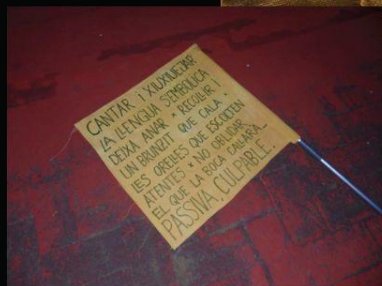 CANTAR I XIUXIUEJAR
LA LLENGUA SEMBOLICA
DEIXA ANAR * RECOLLIR I
UN BRUNZIT QUE CALA *
LES ORELLES QUE ESCOLTEN
ATENTES * NO OBLIDAR
EL QUE LA BOCA CALLARÀ.
PASSIVA, CULPABLE.